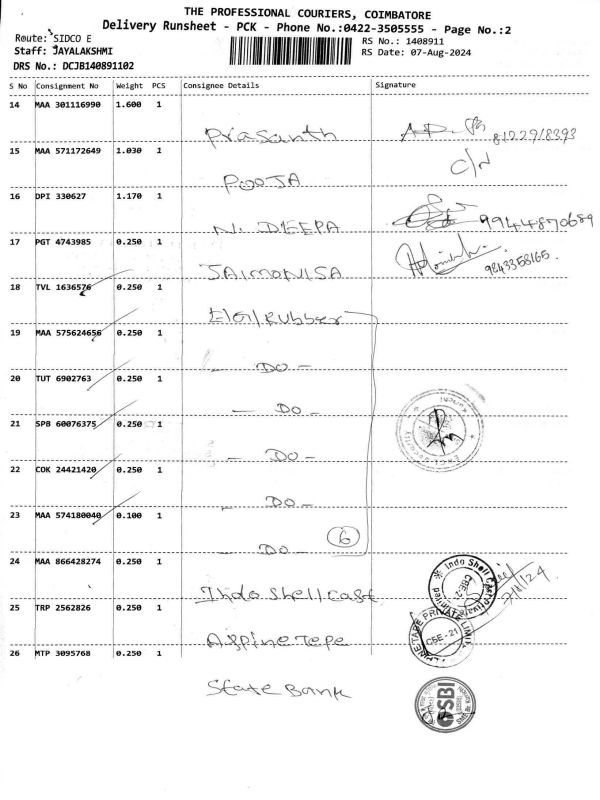 THE PROFESSIONAL COURIERS, COIMBATORE
Delivery Runsheet - PCK - Phone No.:0422-3505555 - Page No.:2
Route: SIDCO E
Staff: JAYALAKSHMI
RS No.: 1408911
RS Date: 07-Aug-2024
DRS No.: DCJB140891102
S No Consignment No Weight PCS Consignee Details Signature
14 MAA 301116990 1.600 1
Prasanth
15 MAA 571172649 1.030 1
C/N
POOJA
16 DPI 330627 1.170 1
N. DEEPA 9944870689
17 PGT 4743985 0.250 1
JAIMONISA 9843358165.
18 TVL 1636576 0.250 1
E/G/Rubber
19 MAA 575624656 0.250 1
- DO -
20 TUT 6902763 0.250 1
- DO -
21 SPB 60076375 0.250 1
- DO -
22 COK 24421420 0.250 1
- DO -
23 MAA 574180040 0.100 1
6
- DO -
24 MAA 866428274 0.250 1
Indo Shell Cast
7/8/124
25 TRP 2562826 0.250 1
CBE-21
Alpine Tape
26 MTP 3095768 0.250 1
State Bank
SBI